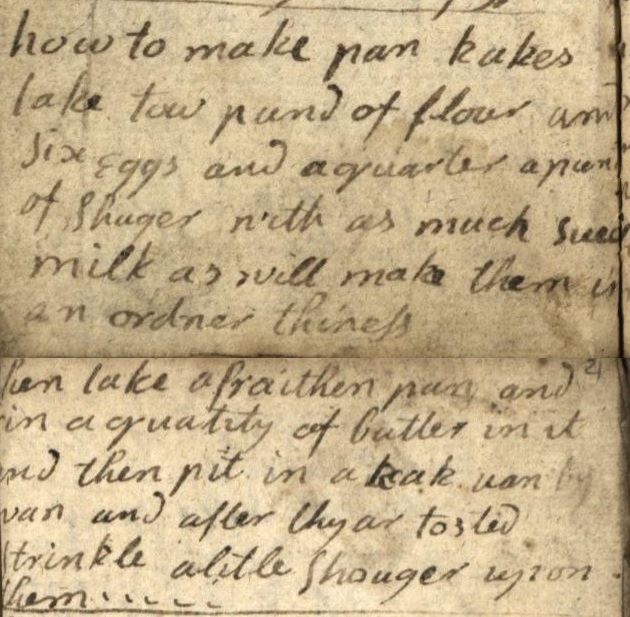 how to make pan kakes
take tow pund of flour and
six eggs and a quarter a pund
of Shuger with as much sweet
milk as will make them in
an ordner thiness
hen take a fraithen pan and 21
in a quatity of butter in it
nd then pit in a keak uan by
van and after thy ar tosted
strinkle a litle Shouger upon
them